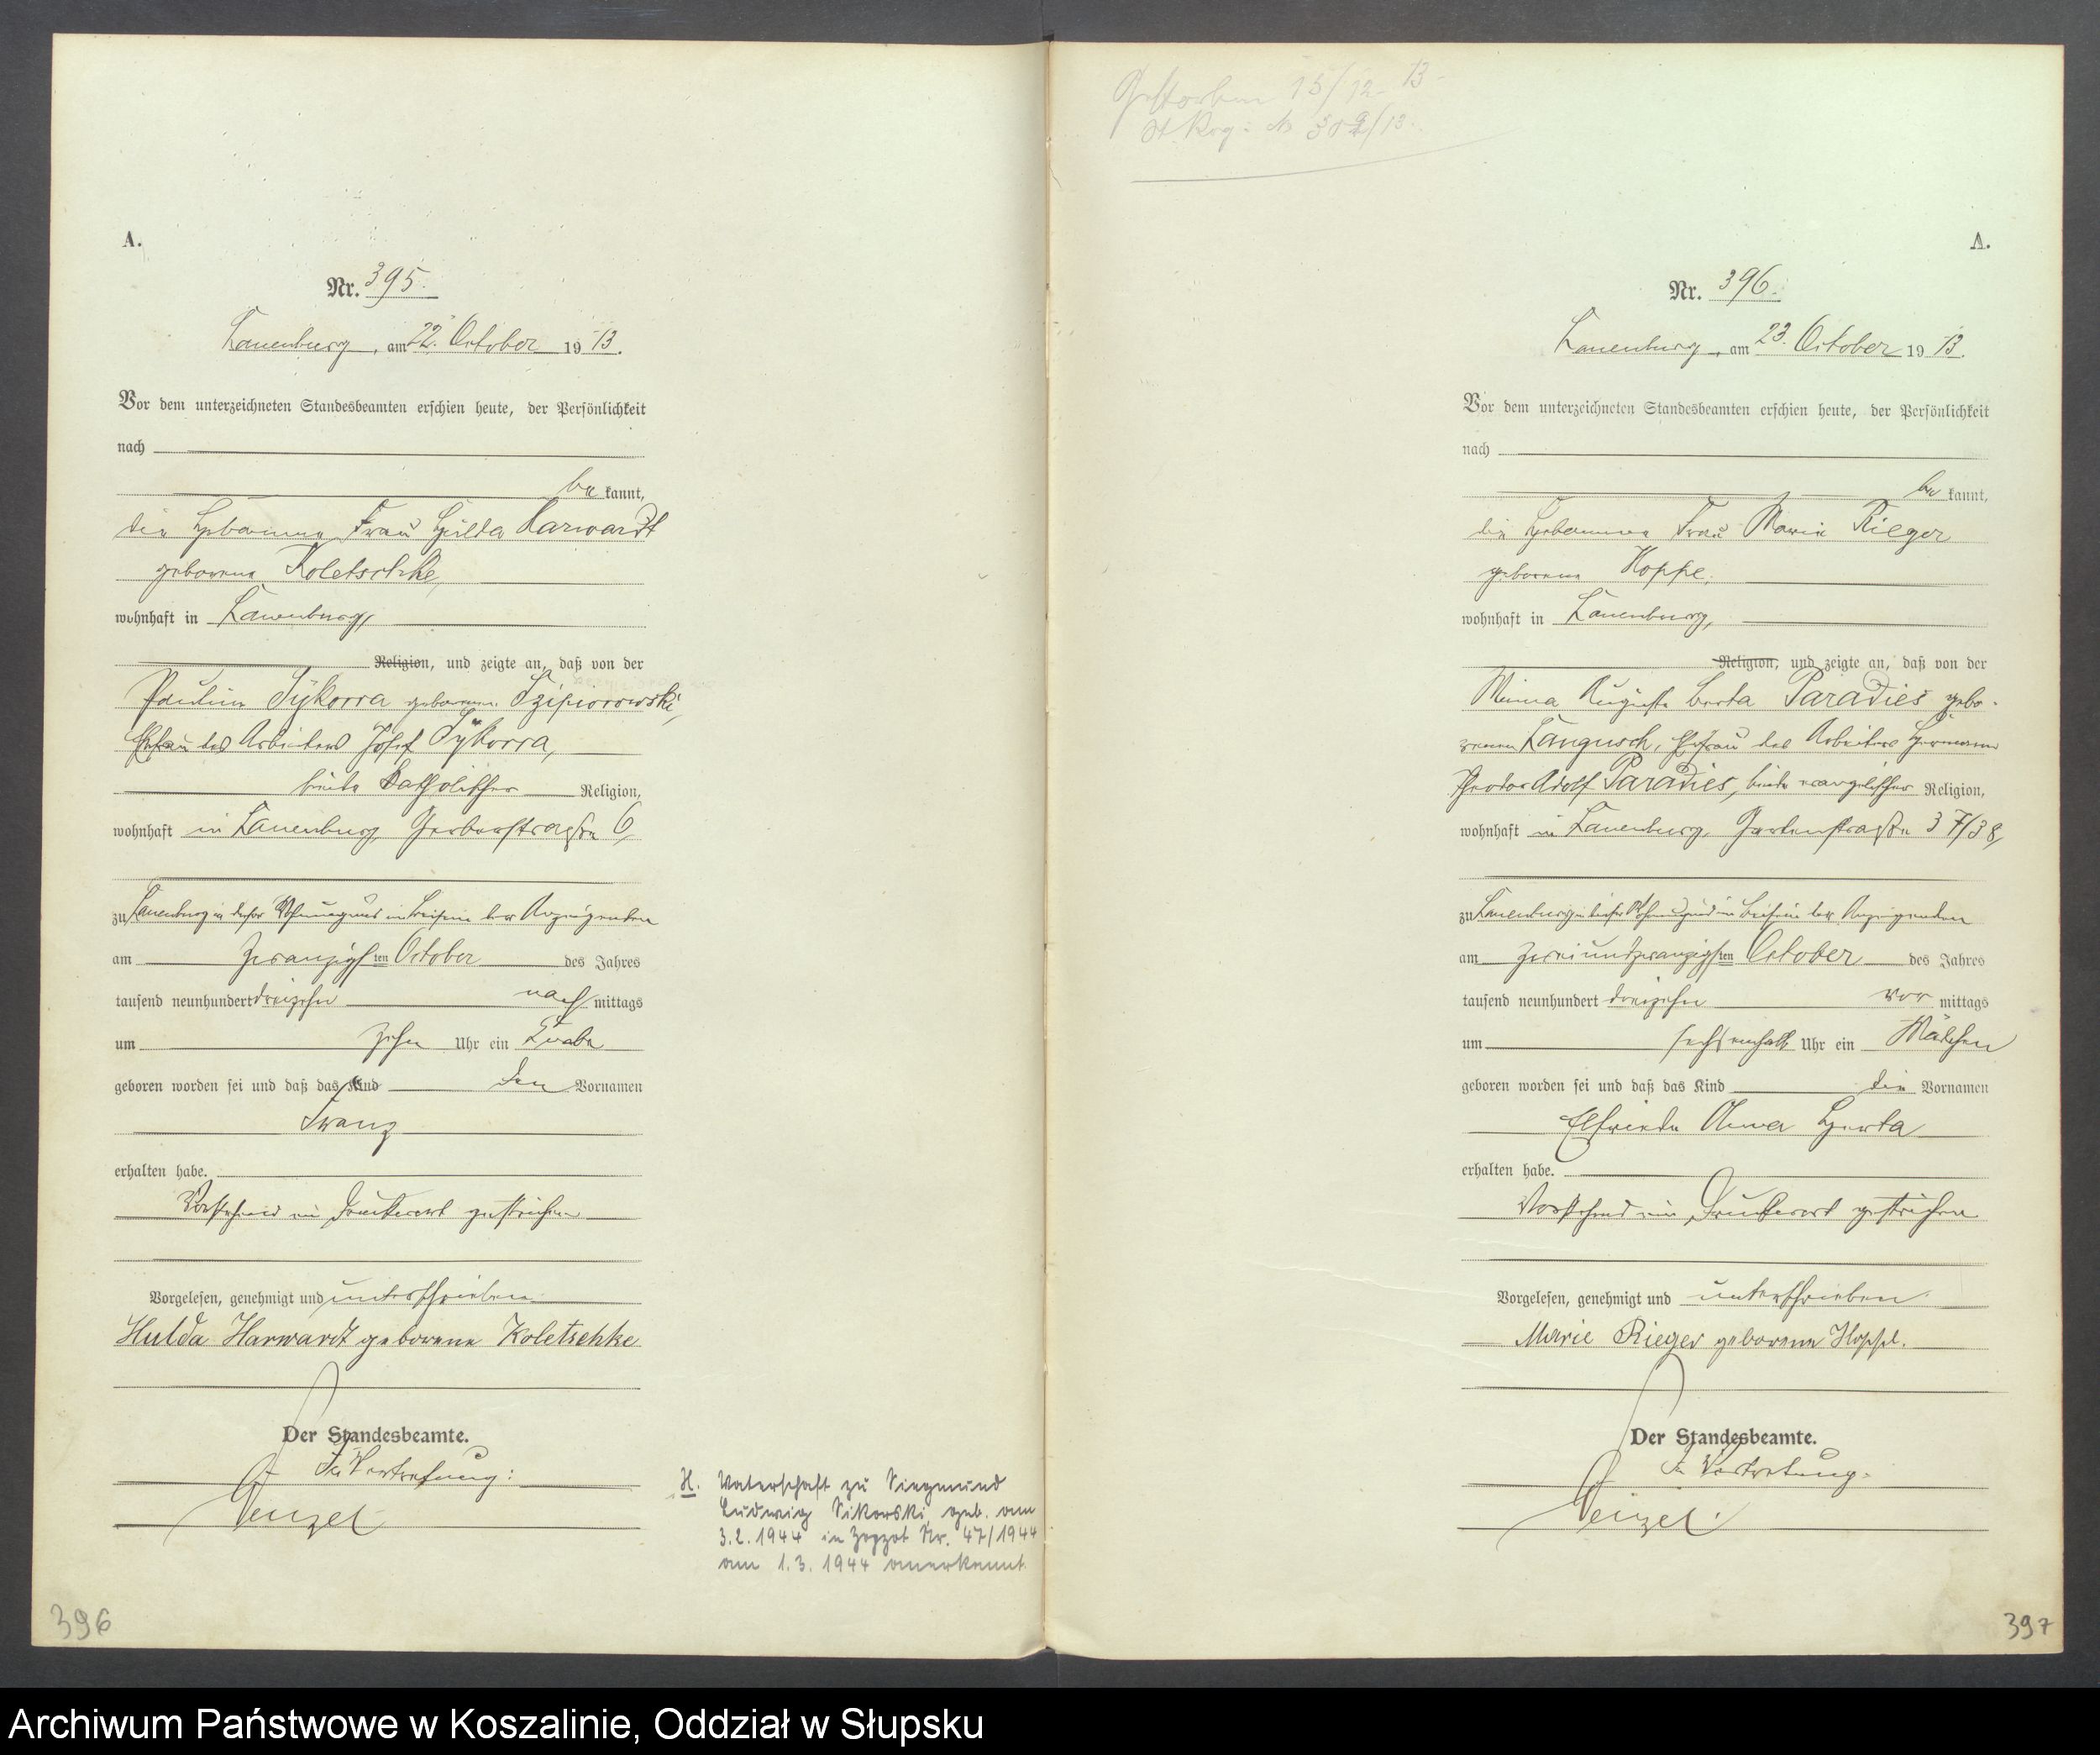 A.
Nr. 395.
Lauenburg, am 22. October 1913.
Vor dem unterzeichneten Standesbeamten erschien heute, der Persönlichkeit
nach
be kannt,
die Hebamme Frau Hulda Harwardt
geborene Koletschke,
wohnhaft in Lauenburg,
Religion, und zeigte an, daß von der
Pauline Sykorra geborene Szipiorowski,
Ehefrau des Arbeiters Josef Sykorra,
beide katholischer Religion,
wohnhaft in Lauenburg, Gerberstraße 6,
zu Lauenburg in dieser Wohnung und in Beisein der Anzeigenden
am zwanzigsten October des Jahres
tausend neunhundert dreizehn nach mittags
um zehn Uhr ein Knabe
geboren worden sei und daß das Kind den Vornamen
Franz
erhalten habe.
Vorstehend ein Druckwort gestrichen
Vorgelesen, genehmigt und unterschrieben
Hulda Harwardt geborene Koletschke
Der Standesbeamte.
In Vertretung:
Wenzel
H. Vaterschaft zu Siegmund
Ludwig Sikorski geb. am
3.2.1944 in Zoppot Nr. 47/1944
am 1.3.1944 anerkannt.
396
Gestorben 15/12 13
St. Reg: No 309/13.
A.
Nr. 396.
Lauenburg, am 23. October 1913.
Vor dem unterzeichneten Standesbeamten erschien heute, der Persönlichkeit
nach
be kannt,
die Hebamme Frau Marie Rieger
geborene Hoppe,
wohnhaft in Lauenburg,
Religion, und zeigte an, daß von der
Minna Auguste Berta Paradies gebo-
renen Langusch, Ehefrau des Arbeiters Hermann
Theodor Adolf Paradies, beide evangelischer Religion,
wohnhaft in Lauenburg, Gartenstraße 37/38,
zu Lauenburg in dieser Wohnung und in Beisein der Anzeigenden
am zweiundzwanzigsten October des Jahres
tausend neunhundert dreizehn vor mittags
um sechseinhalb Uhr ein Mädchen
geboren worden sei und daß das Kind die Vornamen
Elfriede Anna Herta
erhalten habe.
Vorstehend ein Druckwort gestrichen
Vorgelesen, genehmigt und unterschrieben
Marie Rieger geborene Hoppe.
Der Standesbeamte.
In Vertretung:
Wenzel.
397
Archiwum Państwowe w Koszalinie, Oddział w Słupsku